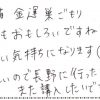 猫 金運 巣ごもり
もおもしろいですね
い気持ちになります(
しいので長野に行った
また購入したいで